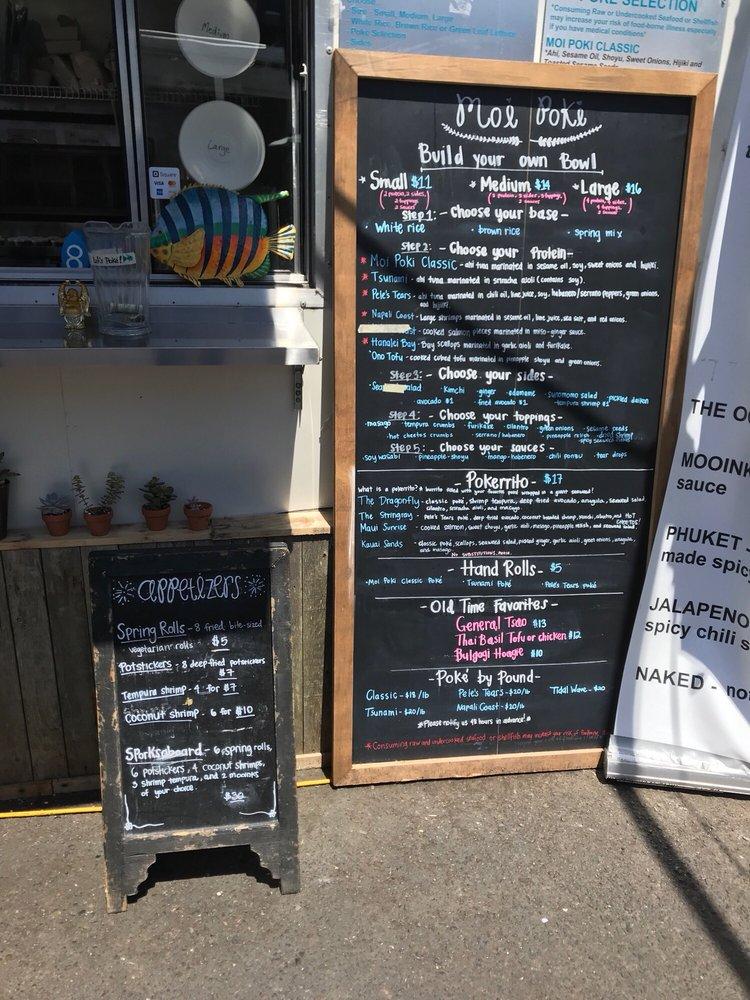 Medium
Large
Square
VISA
8
Size - Small, Medium, Large
White Rice, Brown Rice or Green Leaf Lettuce
Poke Selection
Sides
SELECTION
*Consuming Raw or Undercooked Seafood or Shellfish
may increase your risk of food-borne illness especially
if you have medical conditions*
MOI POKI CLASSIC
*Ahi, Sesame Oil, Shoyu, Sweet Onions, Hijiki and
Moi Poki
Build your own Bowl
*Small $11 *Medium $14 *Large $16
Step 1: - Choose your base -
· White rice · brown rice · spring mix
Step 2: - Choose your Protein -
* Moi Poki Classic - ahi tuna marinated in sesame oil, soy, sweet onions and hijiki.
* Tsunami - ahi tuna marinated in sriracha aioli (contains soy).
* Pele's Tears - ahi tuna marinated in chili oil, lime juice, soy, habanero/serrano peppers, green onions,
and hijiki
* Napali Coast - Large shrimps marinated in sesame oil, lime juice, sea salt, and red onions.
- cooked salmon pieces marinated in miso-ginger sauce.
* Hanalei Bay - Bay scallops marinated in garlic aioli and furikake.
'Ono Tofu - cooked cubed tofu marinated in pineapple shoyu and green onions.
Step 3: - Choose your sides -
· kimchi · ginger · edamame · sunomono salad · pickled daikon
· avocado $1 · fried avocado $1 · tempura shrimp $1
Step 4: - Choose your toppings -
· masago · tempura crumbs · furikake · cilantro · green onions · sesame seeds
· hot cheetos crumbs · serrano/habanero · pineapple relish
Step 5: - Choose your sauces -
· soy wasabi · pineapple-shoyu · mango-habanero · chili ponzu · tear drops
- Pokerrito - $17
What is a pokerrito? A burrito filled with your favorite poké wrapped in a giant seaweed!
The Dragonfly - classic poké, shrimp tempura, deep fried avocado, arugula, seaweed salad,
cilantro, sriracha aioli, and masago.
The Stingray - Pele's Tears poké, deep fried avocado, coconut breaded shrimp,
Maui Sunrise - cooked salmon, sweet shoyu, garlic aioli, masago, pineapple relish, and seaweed salad
Kauai Sands - classic poké, scallops, seaweed salad, pickled ginger, garlic aioli, green onions, arugula,
and masago.
- Hand Rolls - $5
· Moi Poki Classic Poké · Tsunami Poké · Pele's Tears poké
- Old Time Favorites -
General Tsao $13
Thai Basil Tofu or chicken $12
Bulgogi Hoagie $10
- Poké by Pound -
Classic - $18/lb Pele's Tears - $20/lb Tidal Wave - $20
Tsunami - $20/lb Napali Coast - $20/lb
*Please notify us 48 hours in advance! *
*Consuming raw and undercooked seafood or shellfish may increase your risk of
appetizers
Spring Rolls - 8 fried, bite-sized
vegetarian rolls - $5
Potstickers - 8 deep fried potstickers
$7
Tempura shrimp - 4 for $7
Coconut shrimp - 6 for $10
Sporksaboard - 6 spring rolls,
6 potstickers, 4 coconut shrimps,
3 shrimp tempura, and 2 mooinks
of your choice.
$30
THE
MOOINK
sauce
PHUKET
made spicy
JALAPENO
spicy chili
NAKED -